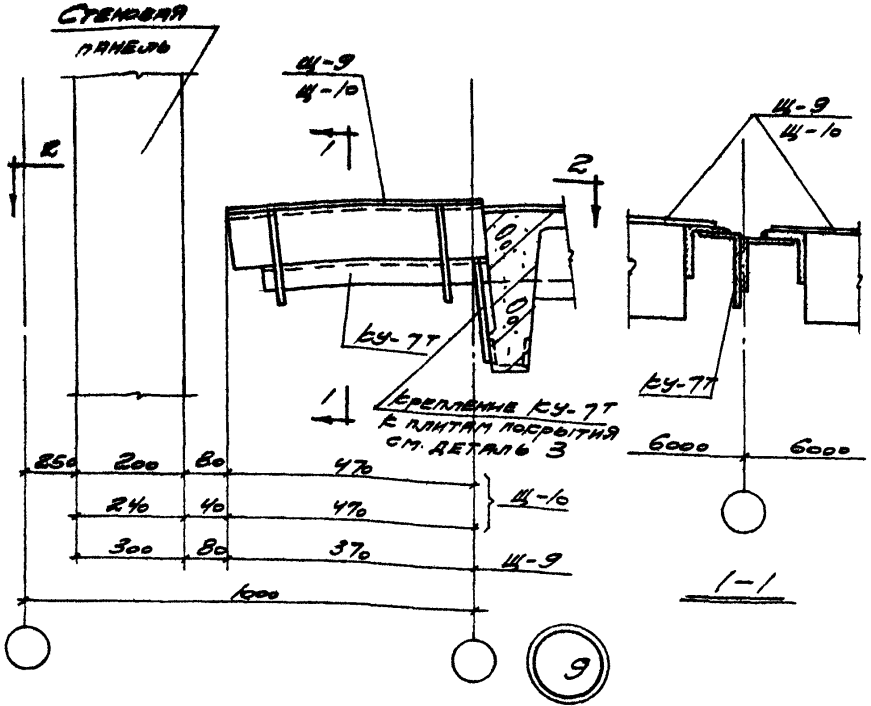 Стеновая
панель
Щ-9
Щ-10
1
2
2
Щ-9
Щ-10
КУ-7Т
КУ-7Т
1
Крепление КУ-7Т
к плитам покрытия
см. деталь 3
6000 6000
250 200 80 470
240 40 470
Щ-10
300 80 370
Щ-9
1000
1-1
9